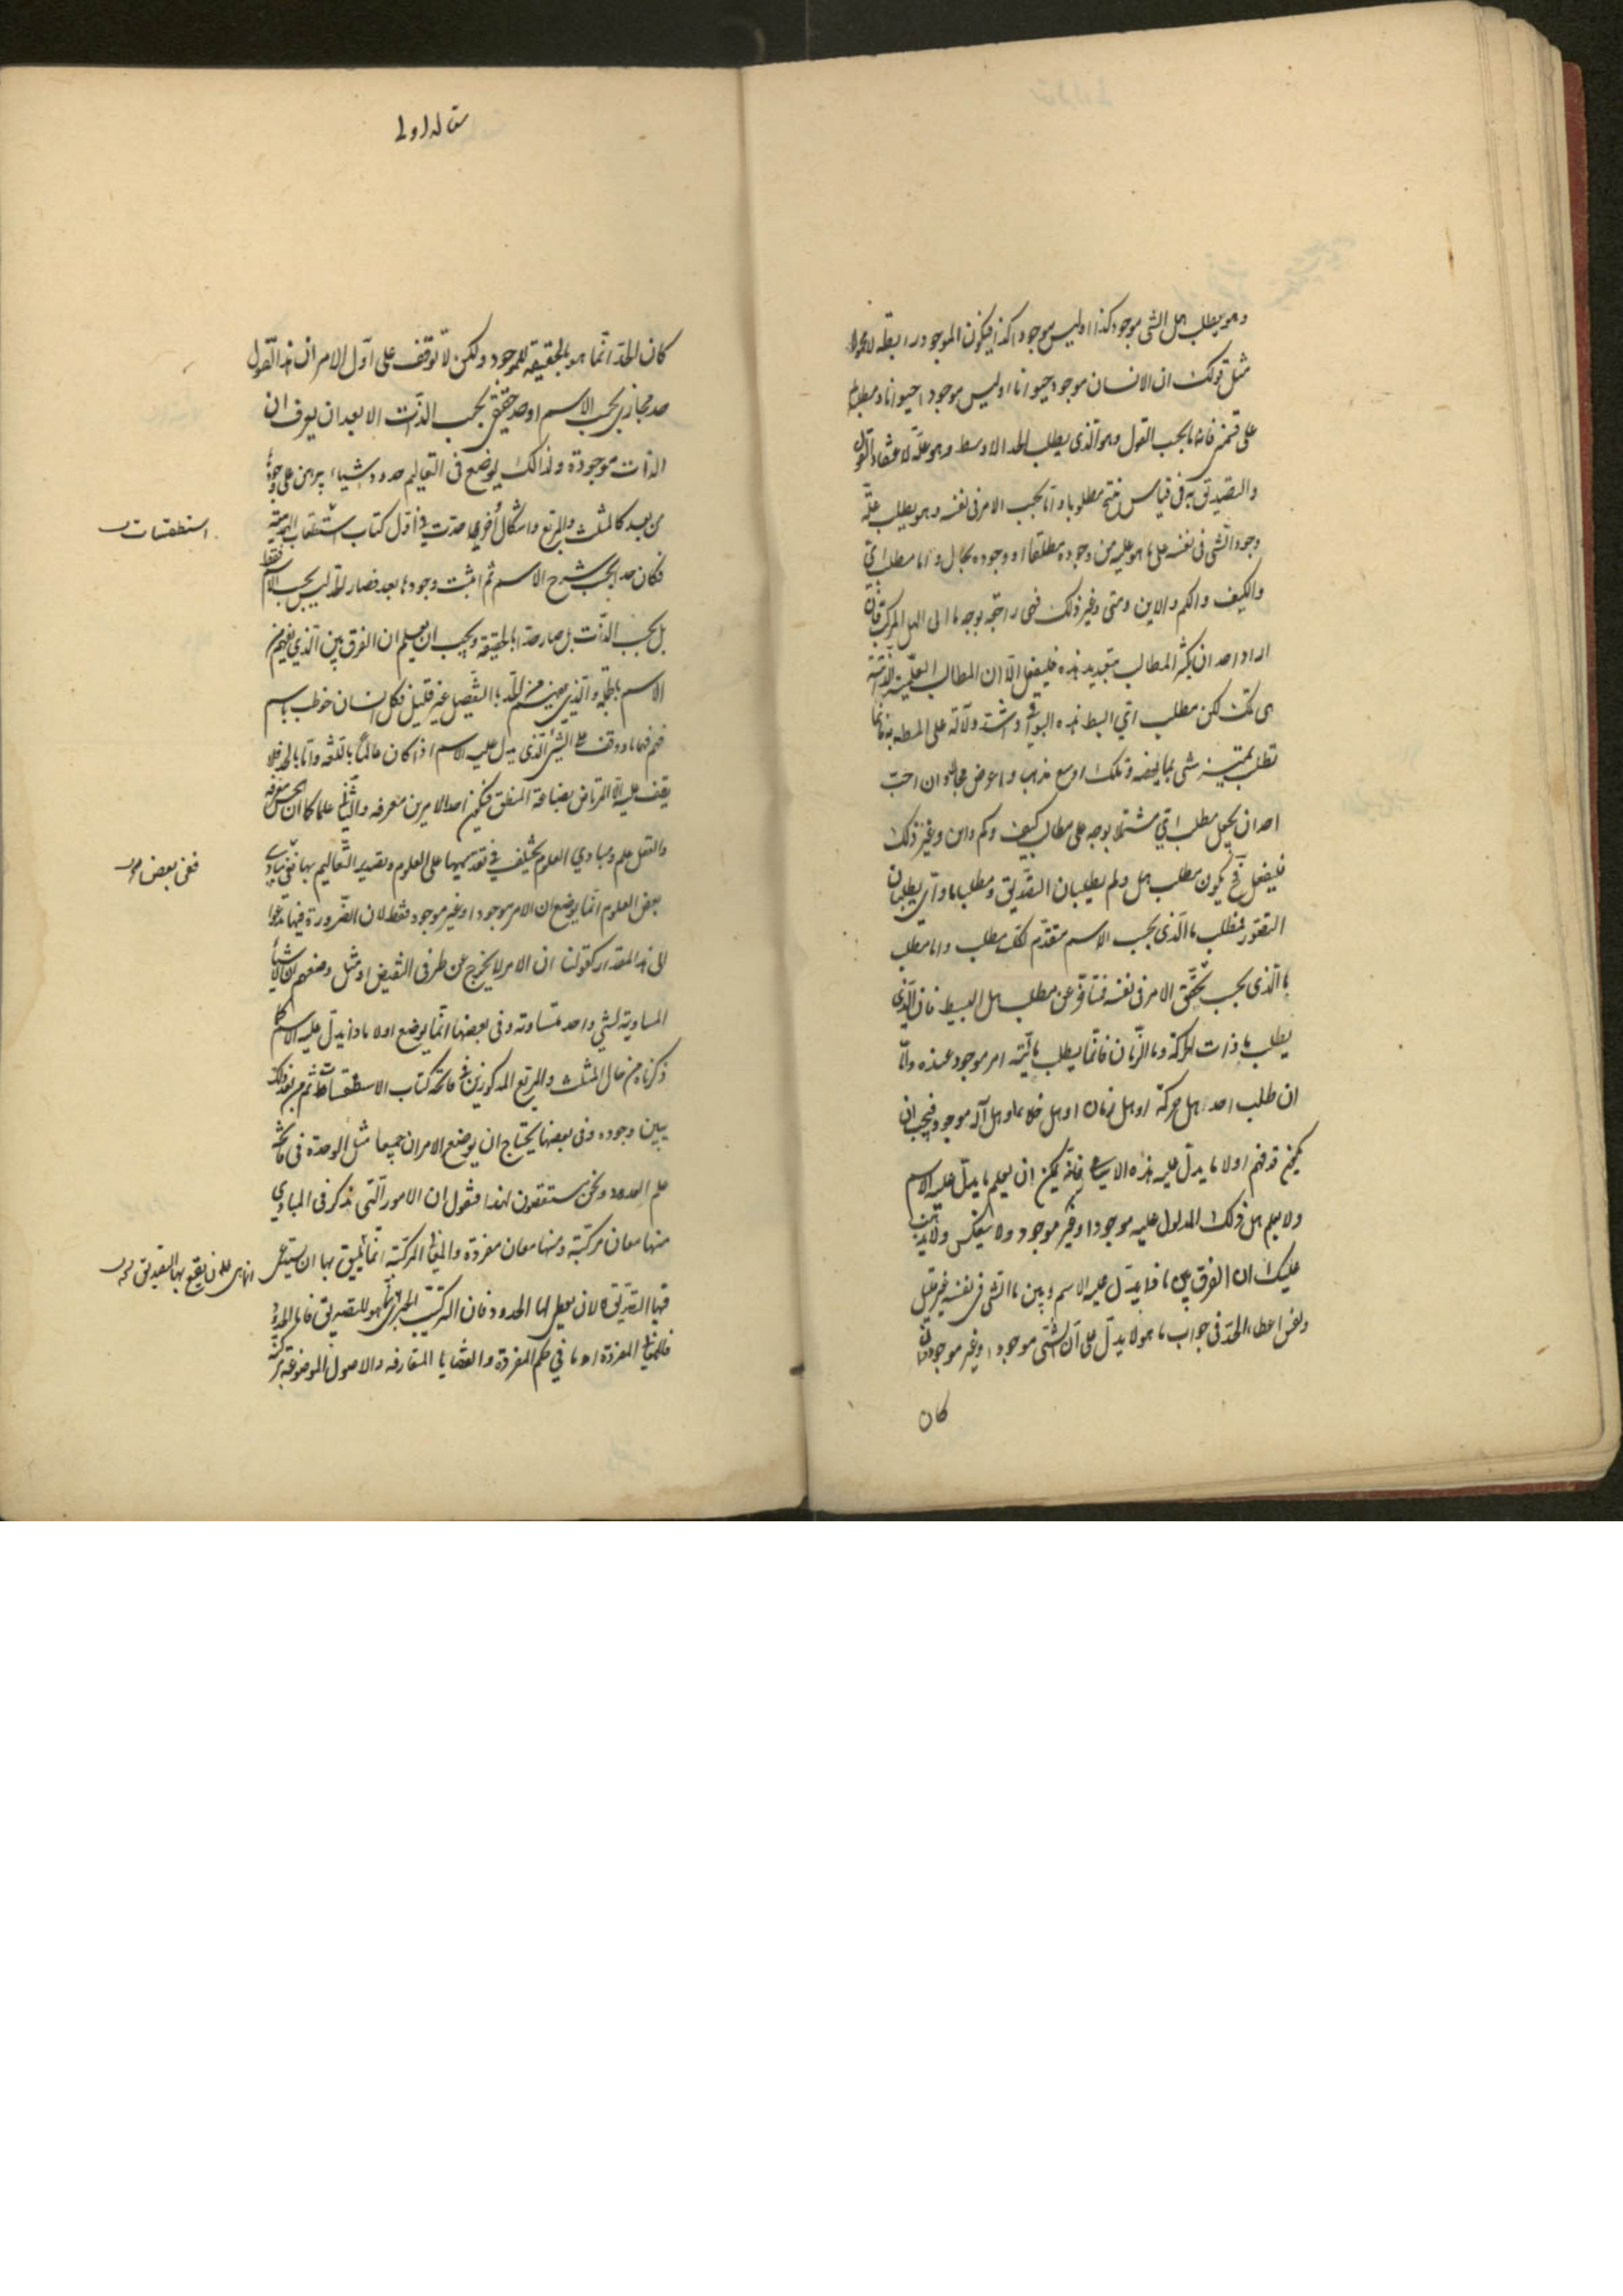 وهو يطلب هل الشی موجود كذا او ليس موجودا كذا فيكون الموجود رابطة لا محمولا
مثل قولك ان الانسان موجود حيوانا او ليس موجودا حيوانا ومطلب
على قسمين فانه اما بحسب القول وهو الذی يطلب الحد الاوسط وهو علة لاعتقاد القول
والتصديق به فی قياس ينتج مطلوبا واما بحسب الامر فی نفسه وهو يطلب علة
وجود الشی فی نفسه على ما هو عليه من وجوده مطلقا او وجوده بحال واما مطلب ای
والكيف والكم والاين ومتى وغير ذلك فهی راجعة بوجه ما الى الهل المركب فان
اراد احد ان يكثر المطالب بتعديد هذه فليفعل الا ان المطالب العلمية الذاتية
هی تلك لكن مطلب ای ابسط هذه البواقی واشد دلالة على المط به فانما
تطلب تميز شی بما يخصه وتلك اوسع مذهب واعرض مجالا وان احب
احد ان يجعل مطلب ای مشتملا بوجه على مطالب كيف وكم واين وغير ذلك
فليفعل فح يكون مطلب هل ولم يطلبان التصديق ومطلب ما وای يطلبان
التصور فمطلب ما الذی بحسب الاسم متقدم لكل مطلب واما مطلب
ما الذی بحسب تحقق الامر فی نفسه فمتاخر عن مطلب هل البسيط فان الذی
يطلب ما ذات الحركة وما الزمان فانما يطلب مائية امر موجود عنده واما
ان طلب احد هل حركة او هل زمان او هل خلاء او هل اله موجود فيجب ان
يكون قد فهم اولا ما يدل عليه هذه الاسامی فانه يمكن ان يعلم ما يدل عليه الاسم
ولا يعلم هل ذلك المدلول عليه موجود او غير موجود ولا ينعكس ولا يذهب
عليك ان الفرق بين ما الذی يدل عليه الاسم وبين ما الشی فی نفسه غير قليل
ونفس اعطاء الحد فی جواب ما هو لا يدل على ان الشی موجود او غير موجود وان
كان
مقاله اولى
كان الحد انما هو بالحقيقة للموجود ولكن لا توقف على اول الامر ان هذا القول
حد مجازی بحسب الاسم او حد حقيقی بحسب الذات الا بعد ان يعرف ان
الذات موجودة ولذلك يوضع فی التعاليم حدود اشياء يبرهن على وجودها
من بعد كالمثلث والمربع واشكال اخری حدت فی اول كتاب استطقسات الهندسة
فكان حدا بحسب شرح الاسم ثم اثبت وجودها بعد فصار الحد ليس بحسب الاسم فقط
بل بحسب الذات بل صار حدا بالحقيقة ويجب ان يعلم ان الفرق بين الذی يفهم من
الاسم بالجملة والذی يفهم من الحد بالتفصيل غير قليل فكل انسان خوطب باسم
فهم فهما ما ووقف على الشی الذی يدل عليه الاسم اذا كان عالما باللغة واما بالحد فلا
يقف عليه الا المرتاض بصناعة المنطق فيكون احد الامرين معرفة والثانی علما كما ان الحس معرفة
والعقل علم ومبادی العلوم تختلف فی تقديمها على العلوم وتصدير التعاليم بها ففی مبادی
بعض العلوم انما يوضع ان الامر موجود او غير موجود فقط لان الضرورة فيها تدعوا
الى هذا المقدار كقولنا ان الامر لا يخرج عن طرفی النقيض او مثل وضعهم ان الاشياء
المساوية لشی واحد متساوية وفی بعضها انما يوضع اولا ماذا يدل عليه الاسم كما
ذكرناه من حال المثلث والمربع المذكورين فی فاتحة كتاب الاسطقسات ثم من بعد ذلك
يبين وجوده وفی بعضها يحتاج ان يوضع الامران جميعا مثل الوحدة فی فاتحة
علم العدد ونحن مستقصون لهذا فنقول ان الامور التی تذكر فی المبادی
منها معان مركبة ومنها معان مفردة والمعانی المركبة انما يليق بها ان يستدعی
فيها التصديق لا ان يعمل لها الحدود فان التركيب الخبری انما هو للتصديق فاما الحدود
فللمعانی المفردة او ما فی حكم المفردة والقضايا المتعارفة والاصول الموضوعة مركبة
استطقسات
ففی بعض